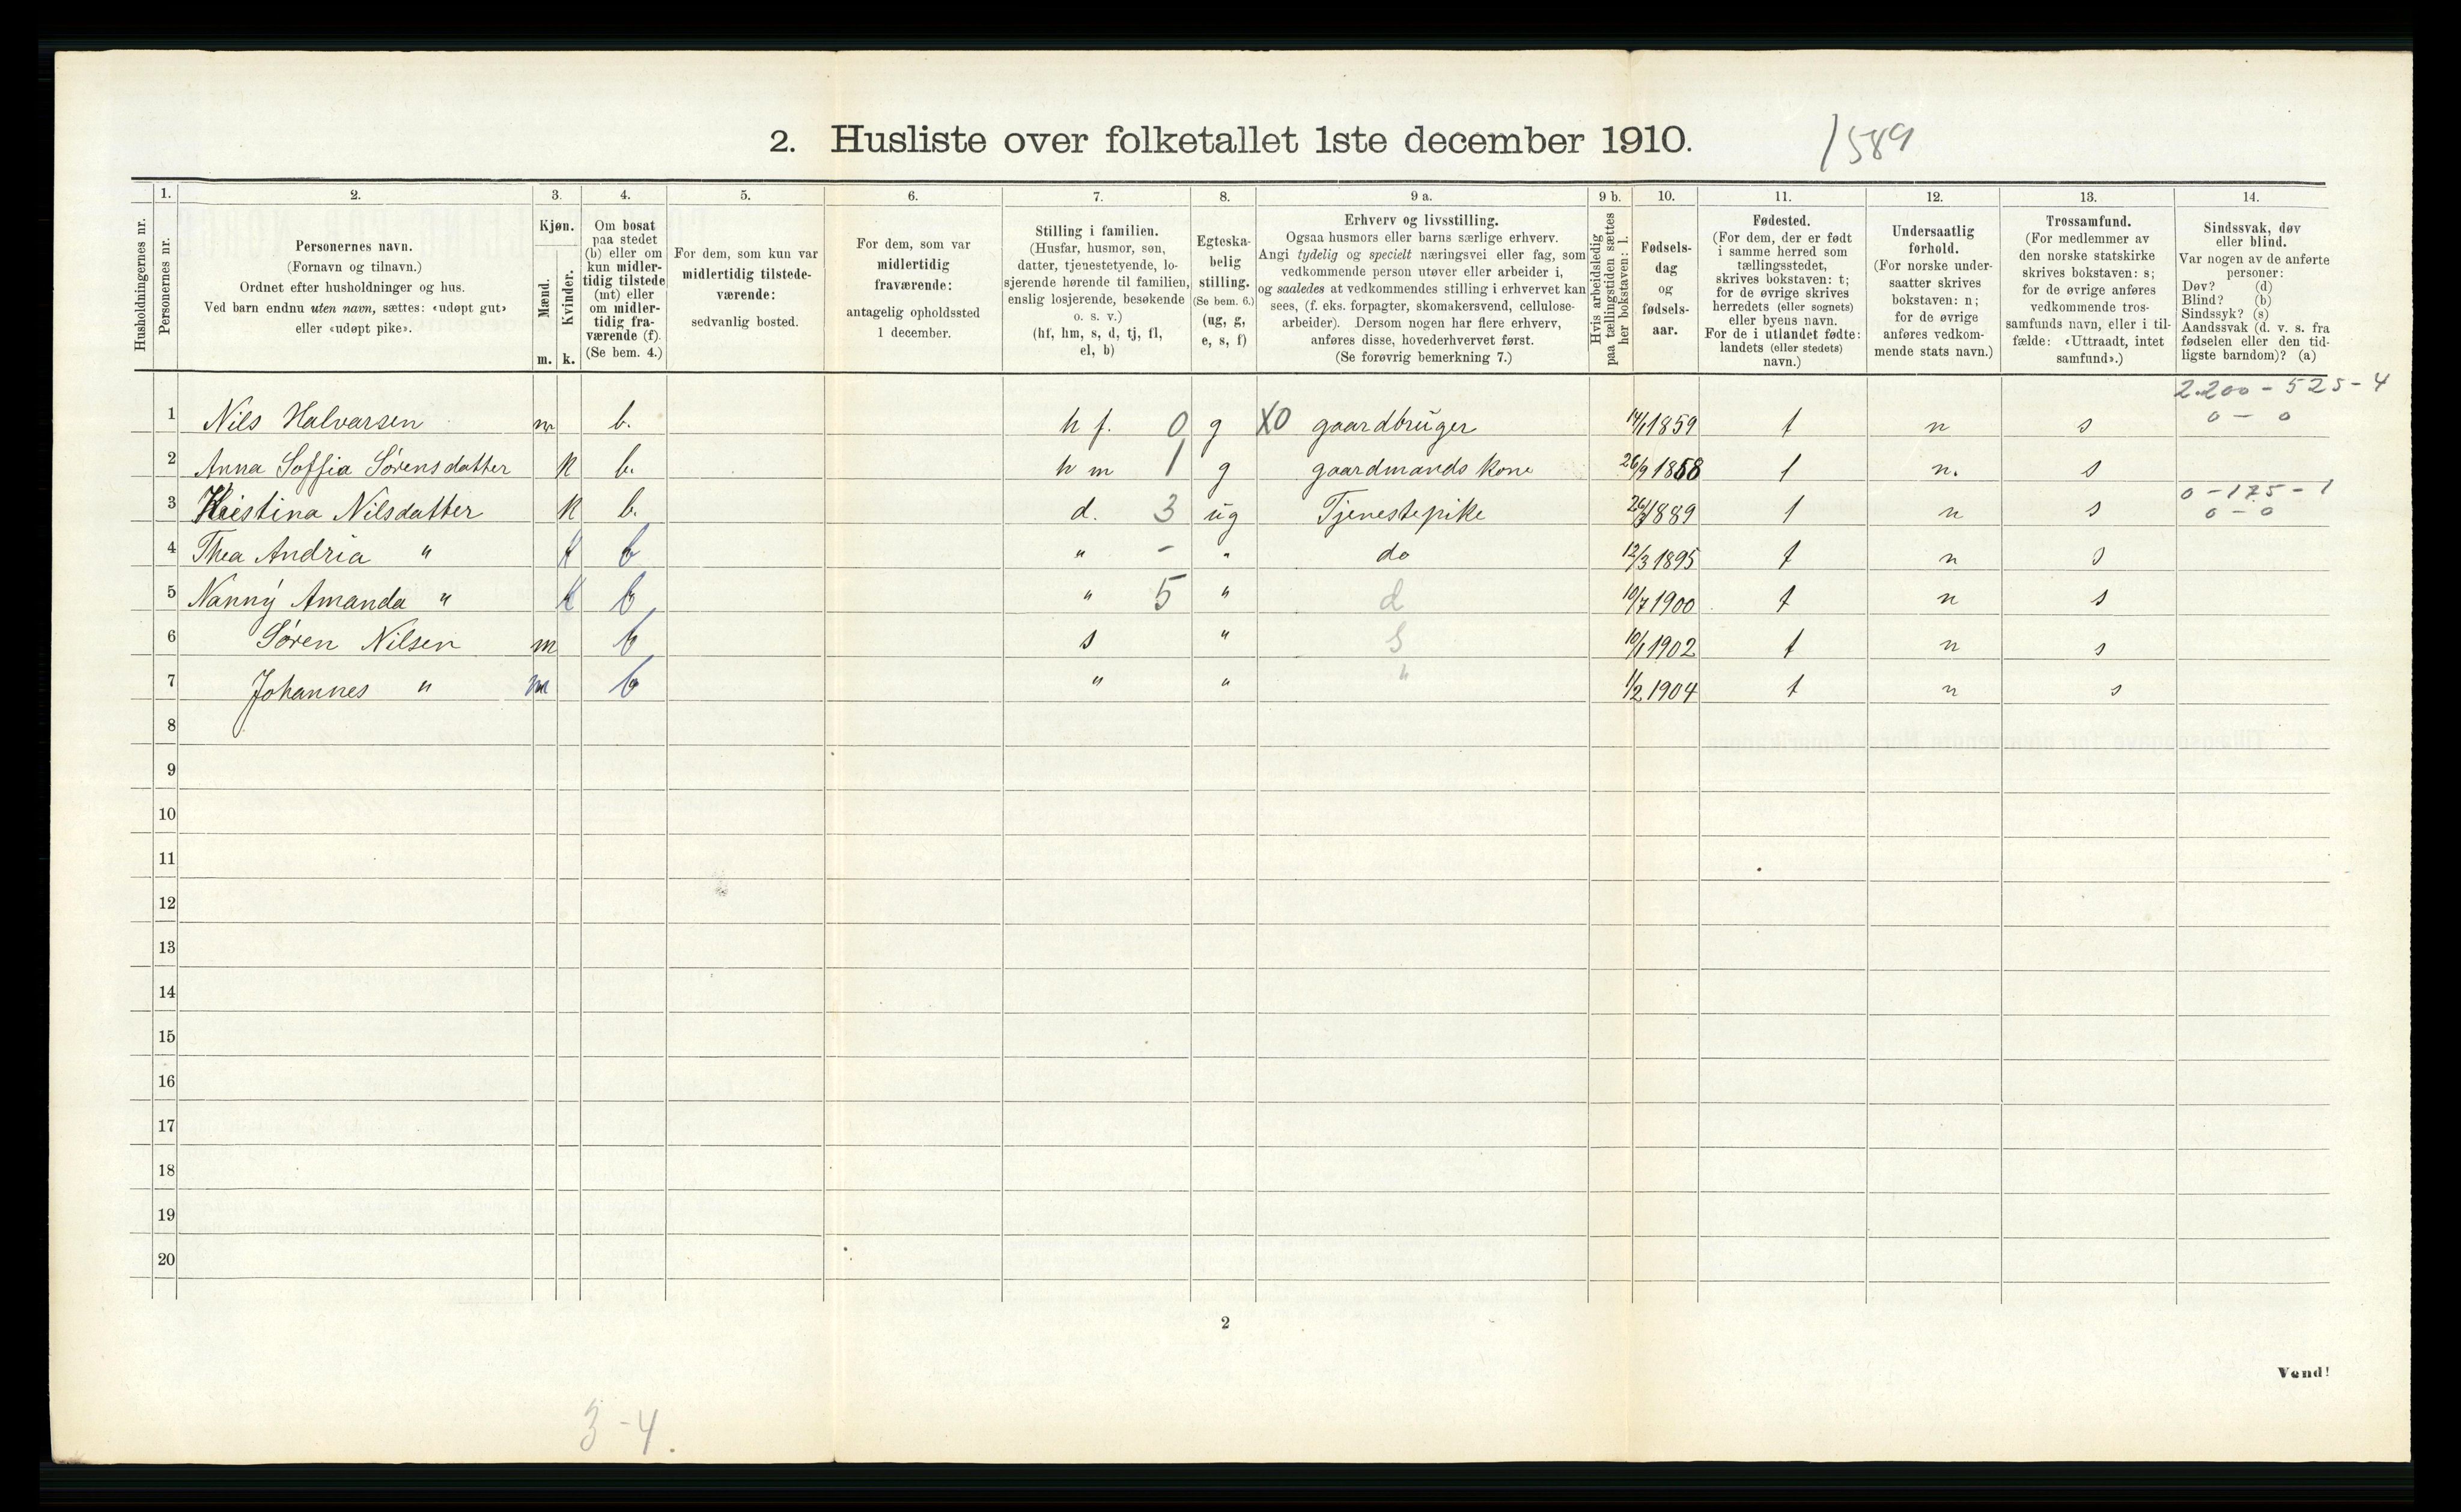 2. Husliste over folketallet 1ste december 1910.
1589
Husholdningernes nr.
1.
Personernes nr.
2.
Personernes navn.
(Fornavn og tilnavn.)
Ordnet efter husholdninger og hus.
Ved barn endnu uten navn, sættes: «udøpt gut»
eller «udøpt pike».
3.
Kjøn.
Mænd.
Kvinder.
m. k.
4.
Om bosat
paa stedet
(b) eller om
kun midler-
tidig tilstede
(mt) eller
om midler-
tidig fra-
værende (f).
(Se bem. 4.)
5.
For dem, som kun var
midlertidig tilstede-
værende:
sedvanlig bosted.
6.
For dem, som var
midlertidig
fraværende:
antagelig opholdssted
1 december.
7.
Stilling i familien.
(Husfar, husmor, søn,
datter, tjenestetyende, lo-
sjerende hørende til familien,
enslig losjerende, besøkende
o. s. v.)
(hf, hm, s, d, tj, fl,
el, b)
8.
Egteska-
belig
stilling.
(Se bem. 6.)
(ug, g,
e, s, f)
9 a.
Erhverv og livsstilling.
Ogsaa husmors eller barns særlige erhverv.
Angi tydelig og specielt næringsvei eller fag, som
vedkommende person utøver eller arbeider i,
og saaledes at vedkommendes stilling i erhvervet kan
sees, (f. eks. forpagter, skomakersvend, cellulose-
arbeider). Dersom nogen har flere erhverv,
anføres disse, hovederhvervet først.
(Se forøvrig bemerkning 7.)
9 b.
Hvis arbeidsledig
paa tællingstiden sættes
her bokstaven: l.
10.
Fødsels-
dag
og
fødsels-
aar.
11.
Fødested.
(For dem, der er født
i samme herred som
tællingsstedet,
skrives bokstaven: t;
for de øvrige skrives
herredets (eller sognets)
eller byens navn.
For de i utlandet fødte:
landets (eller stedets)
navn.)
12.
Undersaatlig
forhold.
(For norske under-
saatter skrives
bokstaven: n;
for de øvrige
anføres vedkom-
mende stats navn.)
13.
Trossamfund.
(For medlemmer av
den norske statskirke
skrives bokstaven: s;
for de øvrige anføres
vedkommende tros-
samfunds navn, eller i til-
fælde: «Uttraadt, intet
samfund».)
14.
Sindssvak, døv
eller blind.
Var nogen av de anførte
personer:
Døv? (d)
Blind? (b)
Sindssyk? (s)
Aandssvak (d. v. s. fra
fødselen eller den tid-
ligste barndom)? (a)
2.200 - 525 - 4
1 Nils Halvarsen m b. h f. 0 g X0 gaardbruger 14/1 1859 t n s 0 - 0
2 Anna Soffia Sørensdatter k b. h m 1 g gaardmands kone 26/9 1858 t n. s
0 - 175 - 1
3 Kristina Nilsdatter k b. d. 3 ug Tjenestepike 1889 t n s 0 - 0
4 Thea Andria " k b " - " do 12/3 1895 t n s
5 Nanny Amanda " k b " 5 " d 10/7 1900 t n s
6 Søren Nilsen m b s " S 10/1 1902 t n s
7 Johannes " m b " " " 1/2 1904 t n s
8
9
10
11
12
13
14
15
16
17
18
19
20
2
Vend!
3-4.